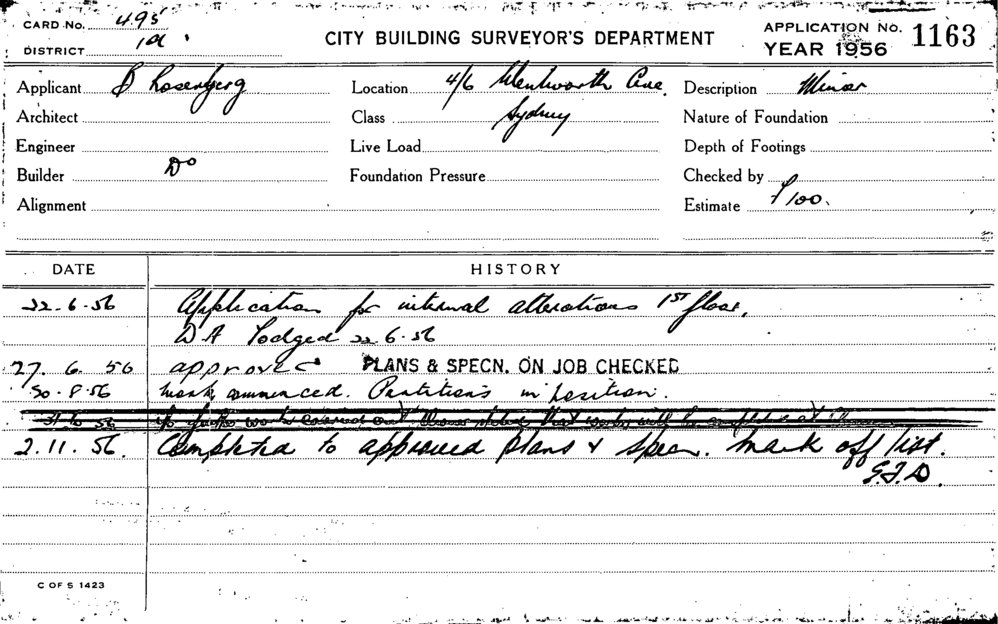 CARD NO. 495
DISTRICT 1a
CITY BUILDING SURVEYOR'S DEPARTMENT
APPLICATION NO. 1163
YEAR 1956
Applicant B Rosenberg Location 4/6 Wentworth Ave. Description Minor
Architect Class Sydney Nature of Foundation
Engineer Live Load Depth of Footings
Builder Do Foundation Pressure Checked by
Alignment Estimate £100.
DATE HISTORY
22.6.56 Application for internal alterations 1ST floor.
D A Lodged 22.6.56
27. 6. 56 approved PLANS & SPECN. ON JOB CHECKED
30.8.56 Work commenced. Partitions in position.
31.10.56 no further work carried out
2.11.56. Completed to approved plans & specn. Mark off list.
C OF S 1423